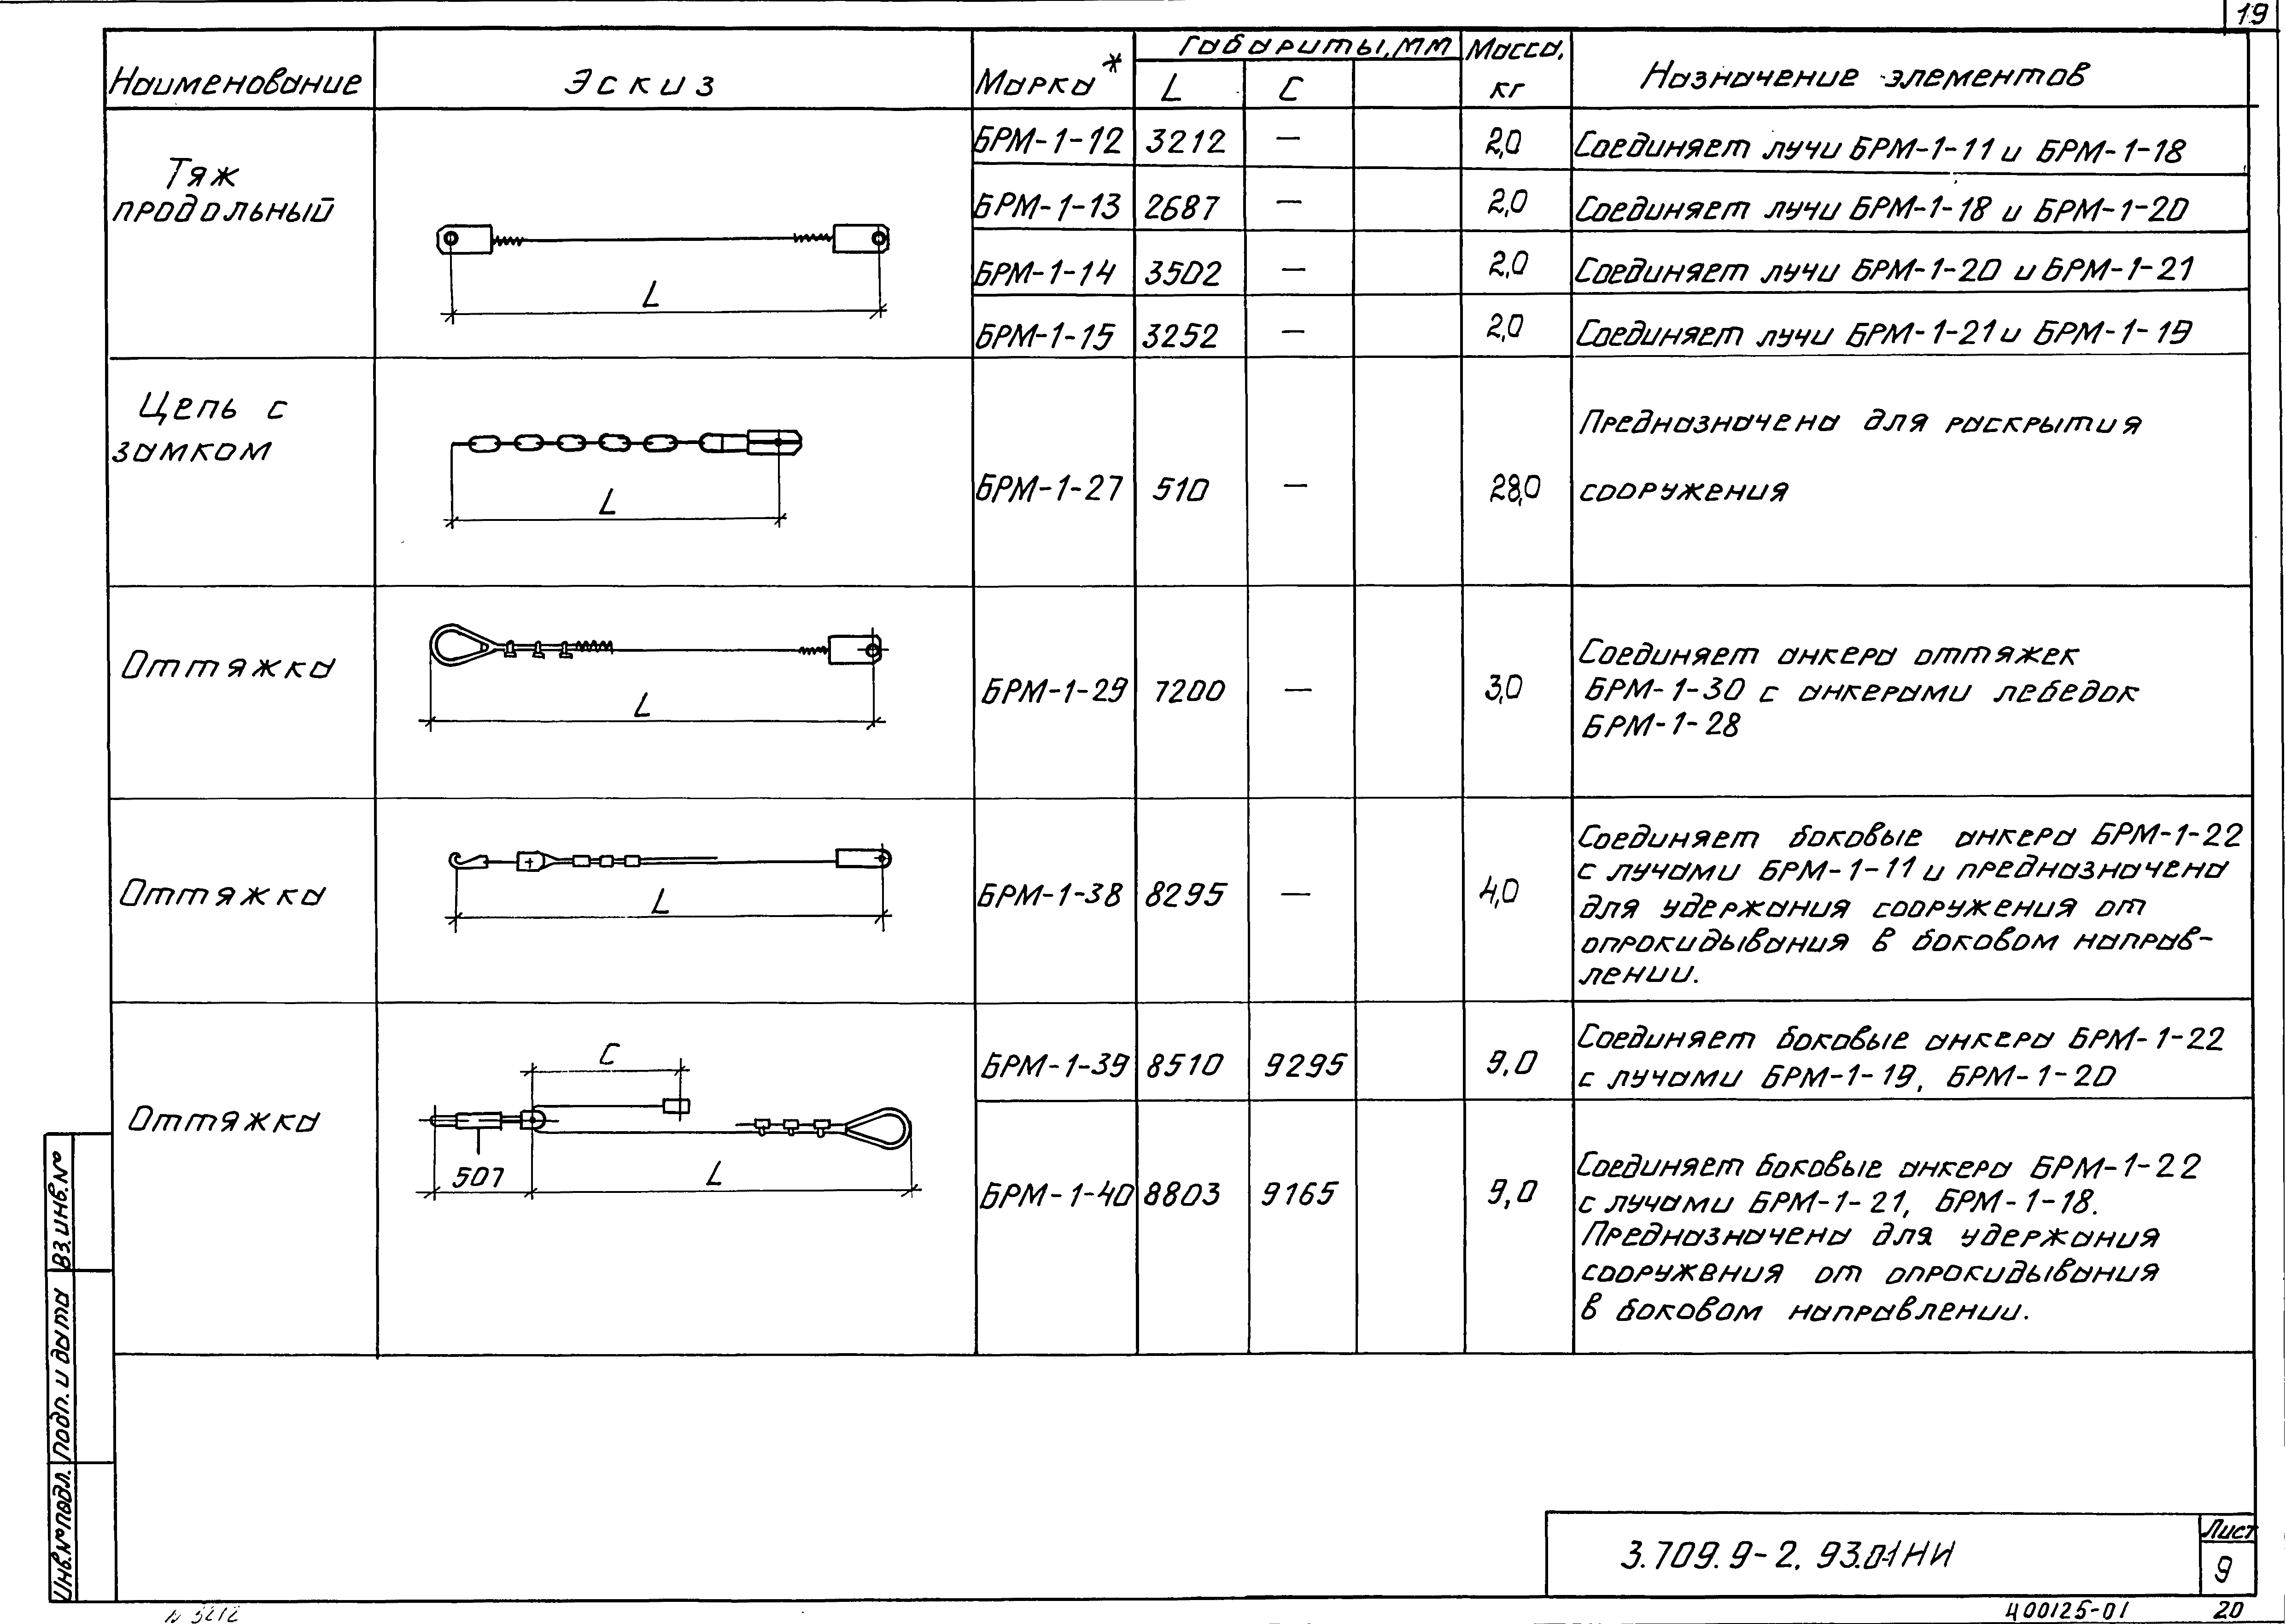 19
Наименование Эскиз Марка* Габариты, мм Масса, кг Назначение элементов
L C
Тяж
продольный
L
БРМ-1-12 3212 — 2,0 Соединяет лучи БРМ-1-11 и БРМ-1-18
БРМ-1-13 2687 — 2,0 Соединяет лучи БРМ-1-18 и БРМ-1-20
БРМ-1-14 3502 — 2,0 Соединяет лучи БРМ-1-20 и БРМ-1-21
БРМ-1-15 3252 — 2,0 Соединяет лучи БРМ-1-21 и БРМ-1-19
Цепь с
замком
L
БРМ-1-27 510 — 28,0
Предназначена для раскрытия
сооружения
Оттяжка
L
БРМ-1-29 7200 — 3,0
Соединяет анкера оттяжек
БРМ-1-30 с анкерами лебедок
БРМ-1-28
Оттяжка
L
БРМ-1-38 8295 — 4,0
Соединяет боковые анкера БРМ-1-22
с лучами БРМ-1-11 и предназначена
для удержания сооружения от
опрокидывания в боковом направ-
лении.
Оттяжка
C
507 L
БРМ-1-39 8510 9295 9,0
Соединяет боковые анкера БРМ-1-22
с лучами БРМ-1-19, БРМ-1-20
БРМ-1-40 8803 9165 9,0
Соединяет боковые анкера БРМ-1-22
с лучами БРМ-1-21, БРМ-1-18.
Предназначена для удержания
сооружения от опрокидывания
в боковом направлении.
Вз.инв.№
Подп. и дата
Инв.№подл.
3.709.9-2.93.0-1НИ
Лист
9
N 3212
400125-01 20